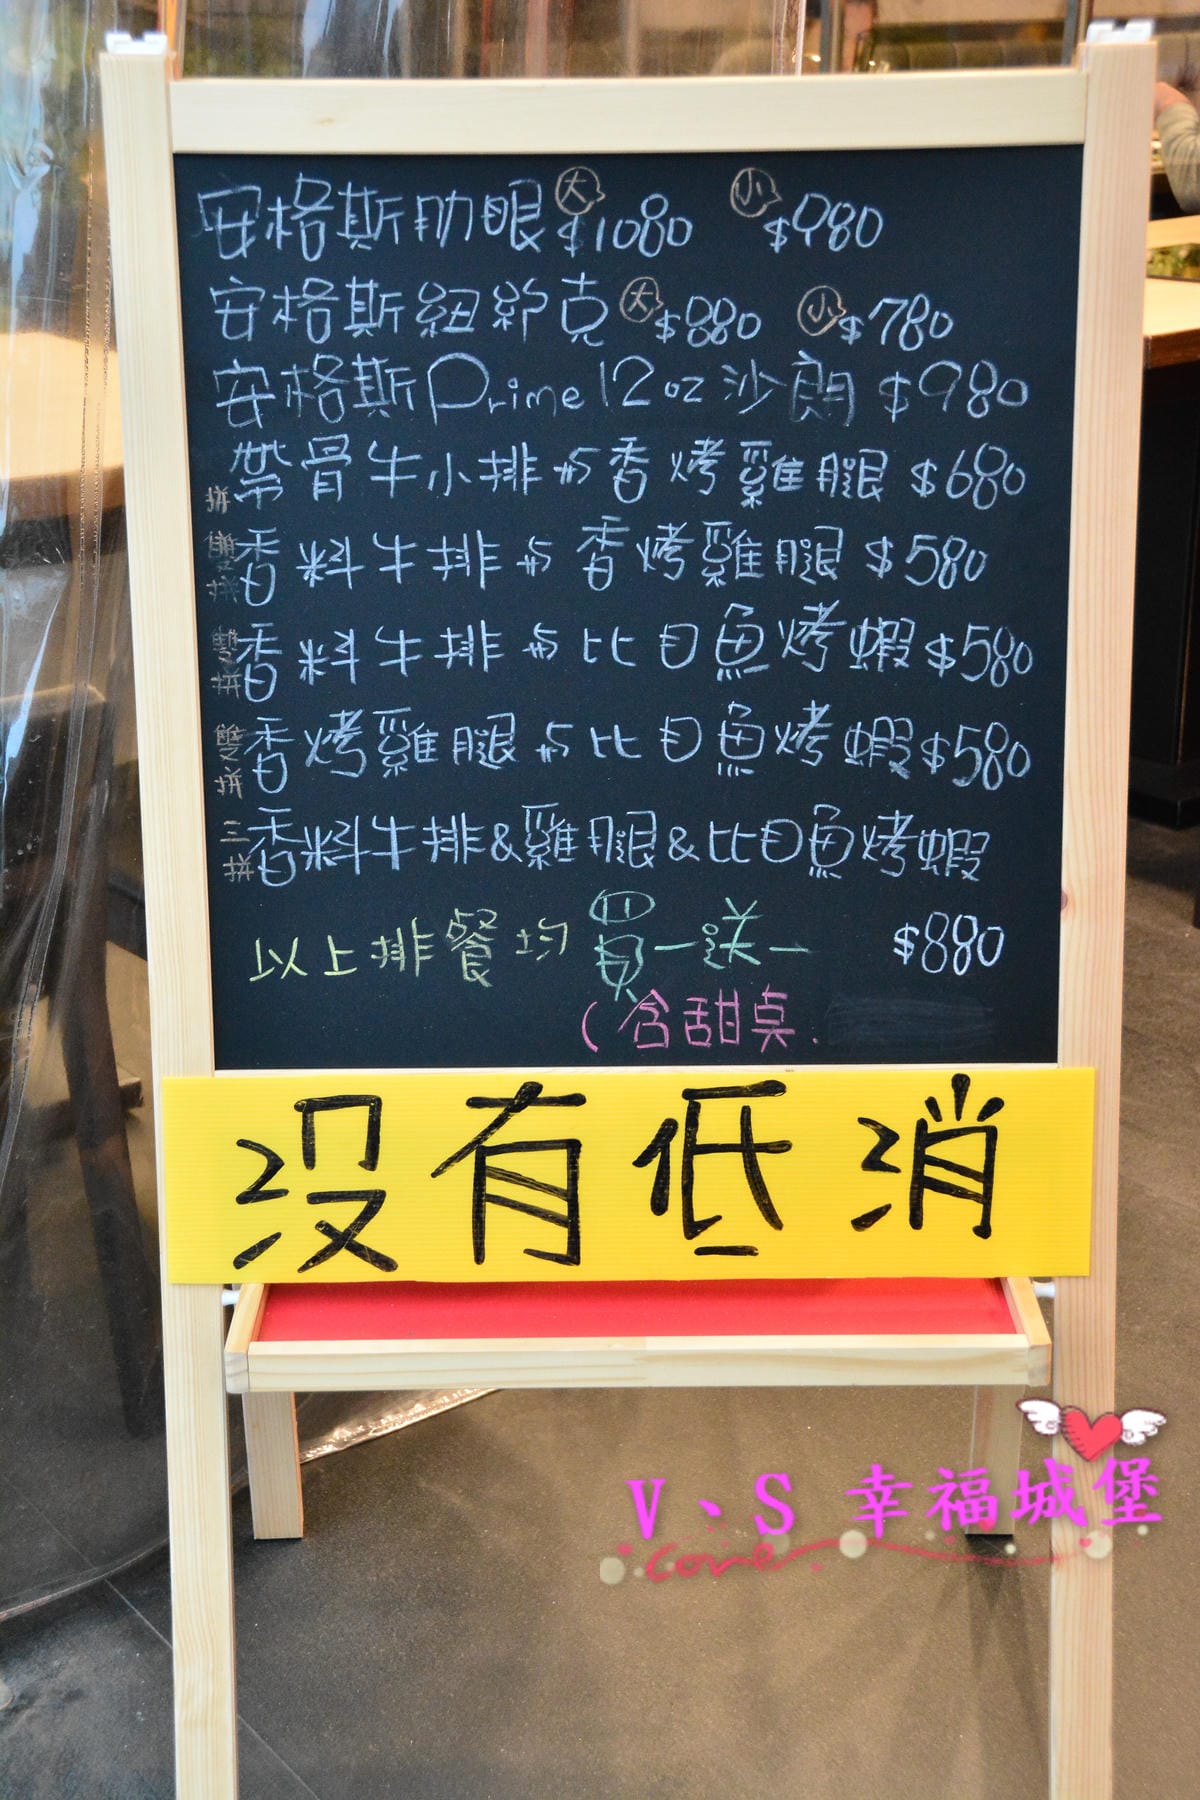 安格斯肋眼 大 $1080 小 $980
安格斯紐約克 大 $880 小 $780
安格斯Prime 12oz 沙朗 $980
拼 帶骨牛小排&香烤雞腿 $680
雙拼 香料牛排&香烤雞腿 $580
雙拼 香料牛排&比目魚烤蝦 $580
雙拼 香烤雞腿&比目魚烤蝦 $580
三拼 香料牛排&雞腿&比目魚烤蝦
$880
以上排餐均買一送一
(含甜桌.
沒有低消
V、S 幸福城堡